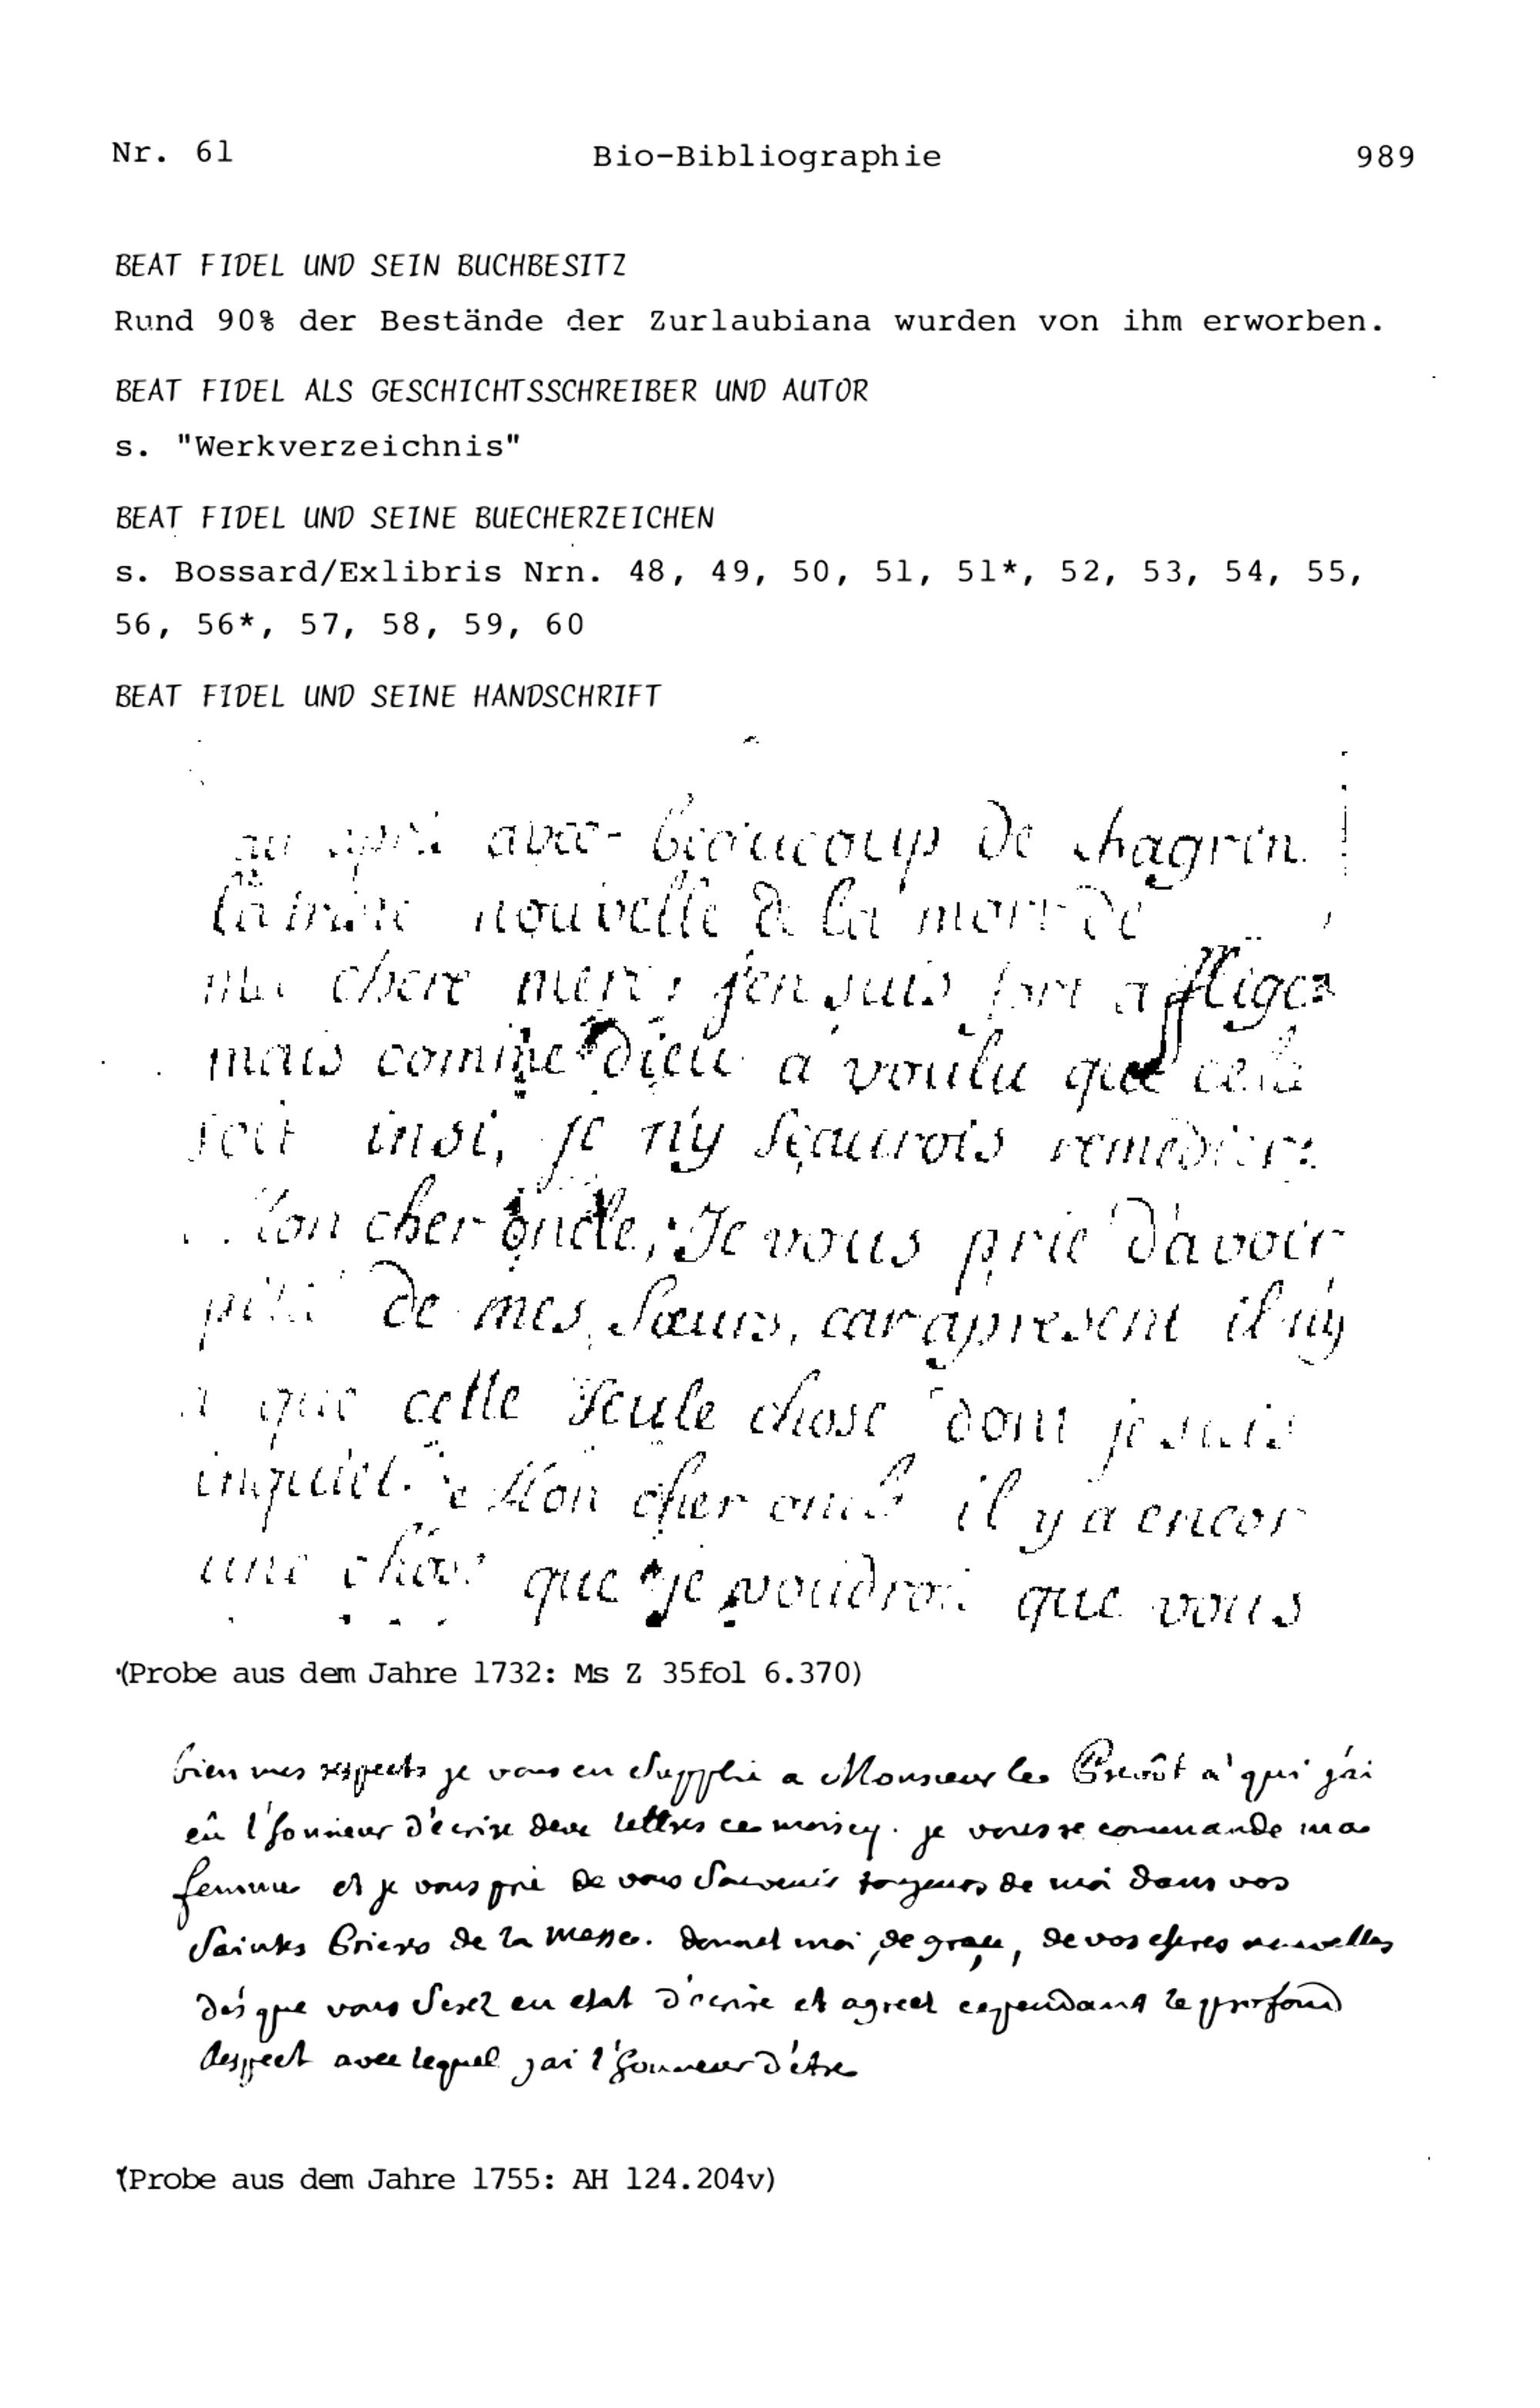 Nr. 61 Bio-Bibliographie 989
BEAT FIDEL UND SEIN BUCHBESITZ
Rund 90% der Bestände der Zurlaubiana wurden von ihm erworben.
BEAT FIDEL ALS GESCHICHTSSCHREIBER UND AUTOR
s. "Werkverzeichnis"
BEAT FIDEL UND SEINE BUECHERZEICHEN
s. Bossard/Exlibris Nrn. 48, 49, 50, 51, 51*, 52, 53, 54, 55,
56, 56*, 57, 58, 59, 60
BEAT FIDEL UND SEINE HANDSCHRIFT
avec beaucoup de chagrin
nouvelle de la mort de
ma chere mere; j'en suis fort afflige
mais comme dieu a voulu que cela
soit insi, je n'y sçaurois remedier:
Mon cher oncle, Je vous prie d'avoir
pitié de mes sœurs, car apresent il n'y
a que cette seule chose dont je suis
inquiet. Mon cher oncle il y a encor
une chose que je voudrois que vous
(Probe aus dem Jahre 1732: Ms Z 35fol 6.370)
bien mes respects je vous en supplie a Monsieur le Prevôt a' qui j'ai
eû l'honneur d'écrire deux lettres ce moiscy. je vous recommande ma
femme et je vous prie de vous souvenir toujours de moi dans vos
saintes Prieres de la messe. donnet moi, de grace, de vos cheres nouvelles
dés que vous serez en etat d'ecrire et agreet cependant le profond
Respect avec lequel j'ai l'honneur d'étre
(Probe aus dem Jahre 1755: AH 124.204v)